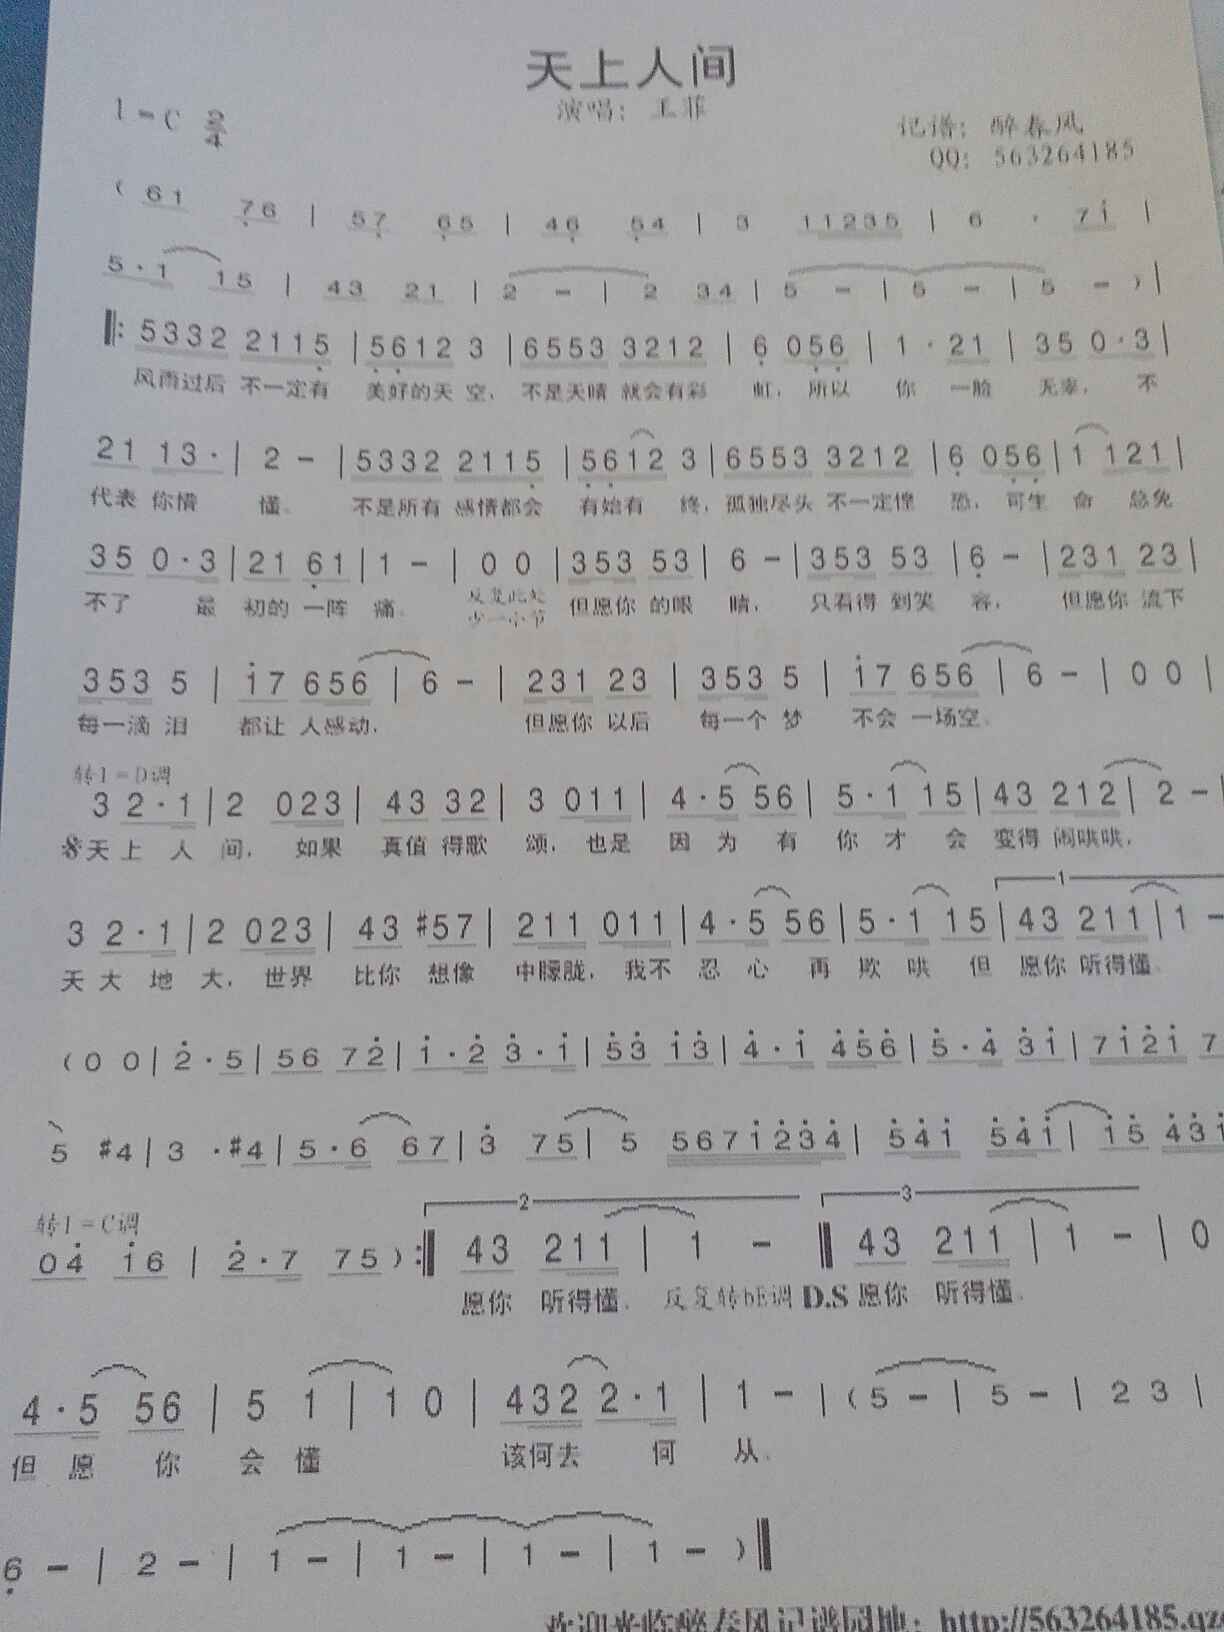 天上人间
演唱：王菲
1=C 2/4
记谱：醉春风
QQ：563264185
( 61 76 | 57 65 | 46 54 | 3 11235 | 6 · 7i |
5·1 15 | 43 21 | 2 - | 2 34 | 5 - | 5 - | 5 - ) |
‖: 5332 2115 | 5612 3 | 6553 3212 | 6 056 | 1·21 | 35 0·3 |
风雨过后 不一定有 美好的天 空，不是天晴 就会有彩 虹，所以 你 一脸 无辜，不
21 13· | 2 - | 5332 2115 | 5612 3 | 6553 3212 | 6 056 | 1 121 |
代表 你懵 懂。 不是所有 感情都会 有始有 终，孤独尽头 不一定惶 恐，可生 命 总免
35 0·3 | 21 61 | 1 - | 0 0 | 353 53 | 6 - | 353 53 | 6 - | 231 23 |
不了 最 初的 一阵 痛。 反复此处少一小节 但愿你 的眼 睛， 只看得 到笑 容， 但愿你 流下
353 5 | i7 656 | 6 - | 231 23 | 353 5 | i7 656 | 6 - | 0 0 |
每一滴 泪 都让 人感动， 但愿你 以后 每一个 梦 不会 一场空。
转1=D调
3 2·1 | 2 023 | 43 32 | 3 011 | 4·5 56 | 5·1 15 | 43 212 | 2 - |
天 上 人 间，如果 真值 得歌 颂，也是 因 为 有 你 才 会 变得 闹哄哄，
1
3 2·1 | 2 023 | 43 #57 | 211 011 | 4·5 56 | 5·1 15 | 43 211 | 1 -
天 大 地 大，世界 比你 想像 中朦胧，我不 忍 心 再 欺 哄 但 愿你 听得懂。
( 0 0 | 2̇·5 | 56 72̇ | 1̇·2̇ 3̇·1̇ | 5̇3̇ 1̇3̇ | 4̇·1̇ 4̇5̇6̇ | 5̇·4̇ 3̇1̇ | 71̇2̇1̇ 7
5 #4 | 3 ·#4 | 5·6 67 | 3̇ 75 | 5 5671̇2̇3̇4̇ | 5̇4̇1̇ 5̇4̇1̇ | 1̇5̇ 4̇3̇1̇
转1=C调
2 3
04̇ 1̇6 | 2̇·7 75 ) :‖ 43 211 | 1 - ‖ 43 211 | 1 - | 0
愿你 听得懂。 反复转bE调 D.S 愿你 听得懂。
4·5 56 | 5 1 | 1 0 | 432 2·1 | 1 - | ( 5 - | 5 - | 2 3 |
但 愿 你 会 懂 该何去 何 从。
6 - | 2 - | 1 - | 1 - | 1 - | 1 - ) ‖
欢迎光临醉春风记谱园地：http://563264185.qz